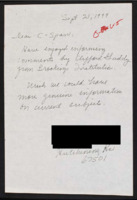 Sept 21, 1999
Dear C-Span,
Have enjoyed informing
comments by Clifford Gaddy
from Brookings Institution
Wish we could have
more genuine information
on current subject
Hutchinson, Ks
67501